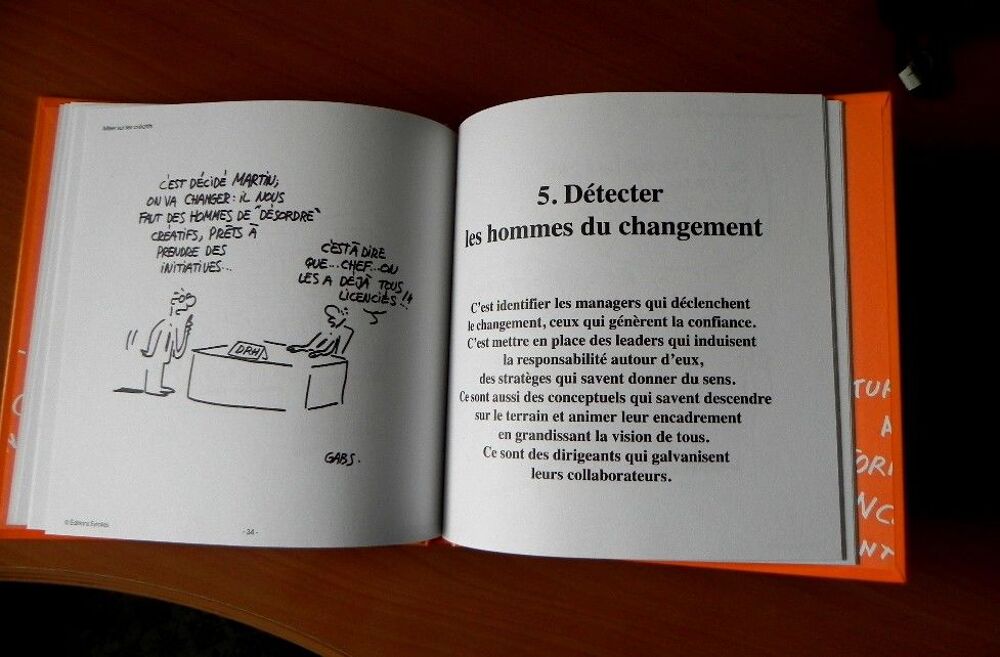 Miser sur les créatifs
C'EST DÉCIDÉ MARTIN;
ON VA CHANGER: IL NOUS
FAUT DES HOMMES DE "DÉSORDRE"
CRÉATIFS, PRÊTS À
PRENDRE DES
INITIATIVES...
C'EST À DIRE
QUE... CHEF... ON
LES A DÉJÀ TOUS
LICENCIÉS!!
DRH
GABS.
© Éditions Eyrolles
- 34 -
5. Détecter
les hommes du changement
C'est identifier les managers qui déclenchent
le changement, ceux qui génèrent la confiance.
C'est mettre en place des leaders qui induisent
la responsabilité autour d'eux,
des stratèges qui savent donner du sens.
Ce sont aussi des conceptuels qui savent descendre
sur le terrain et animer leur encadrement
en grandissant la vision de tous.
Ce sont des dirigeants qui galvanisent
leurs collaborateurs.